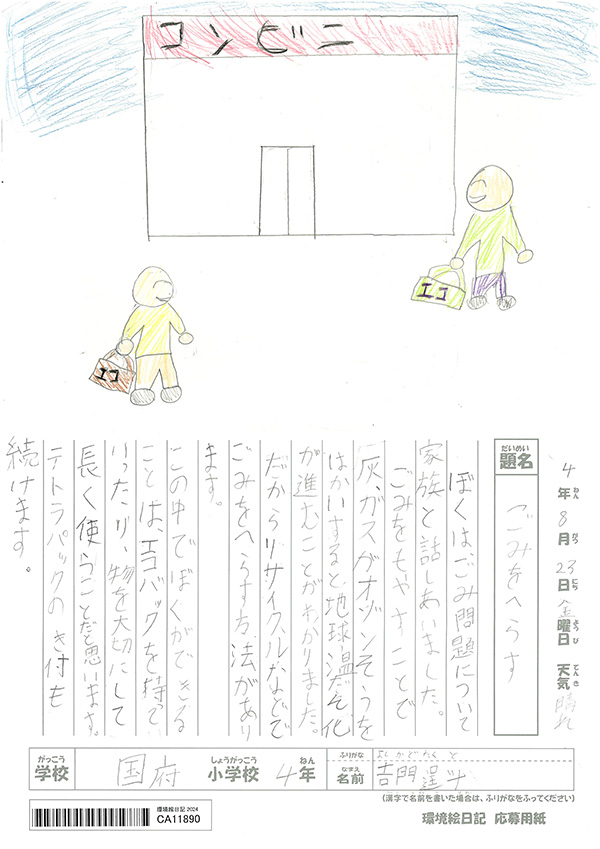 コンビニ
エコ
エコ
4年8月23日金曜日 天気 晴れ
ねん がつ にち ようび てんき
だいめい
題名
ごみをへらす
ぼくは、ごみ問題について
家族と話しあいました。
ごみをもやすことで
灰、ガスがオゾンそうを
はかいすると地球温だん化
が進むことがわかりました。
だからリサイクルなどで
ごみをへらす方法があり
ます。
この中でぼくができる
ことは、エコバックを持って
いったり、物を大切にして
長く使うことだと思います。
テトラパックの き付も
続けます。
がっこう
学校
国府
しょうがっこう
小学校
4年
ねん
ふりがな
よしかどたくと
なまえ
名前
吉門
(漢字で名前を書いた場合は、ふりがなをふってください)
環境絵日記2024
CA11890
環境絵日記 応募用紙